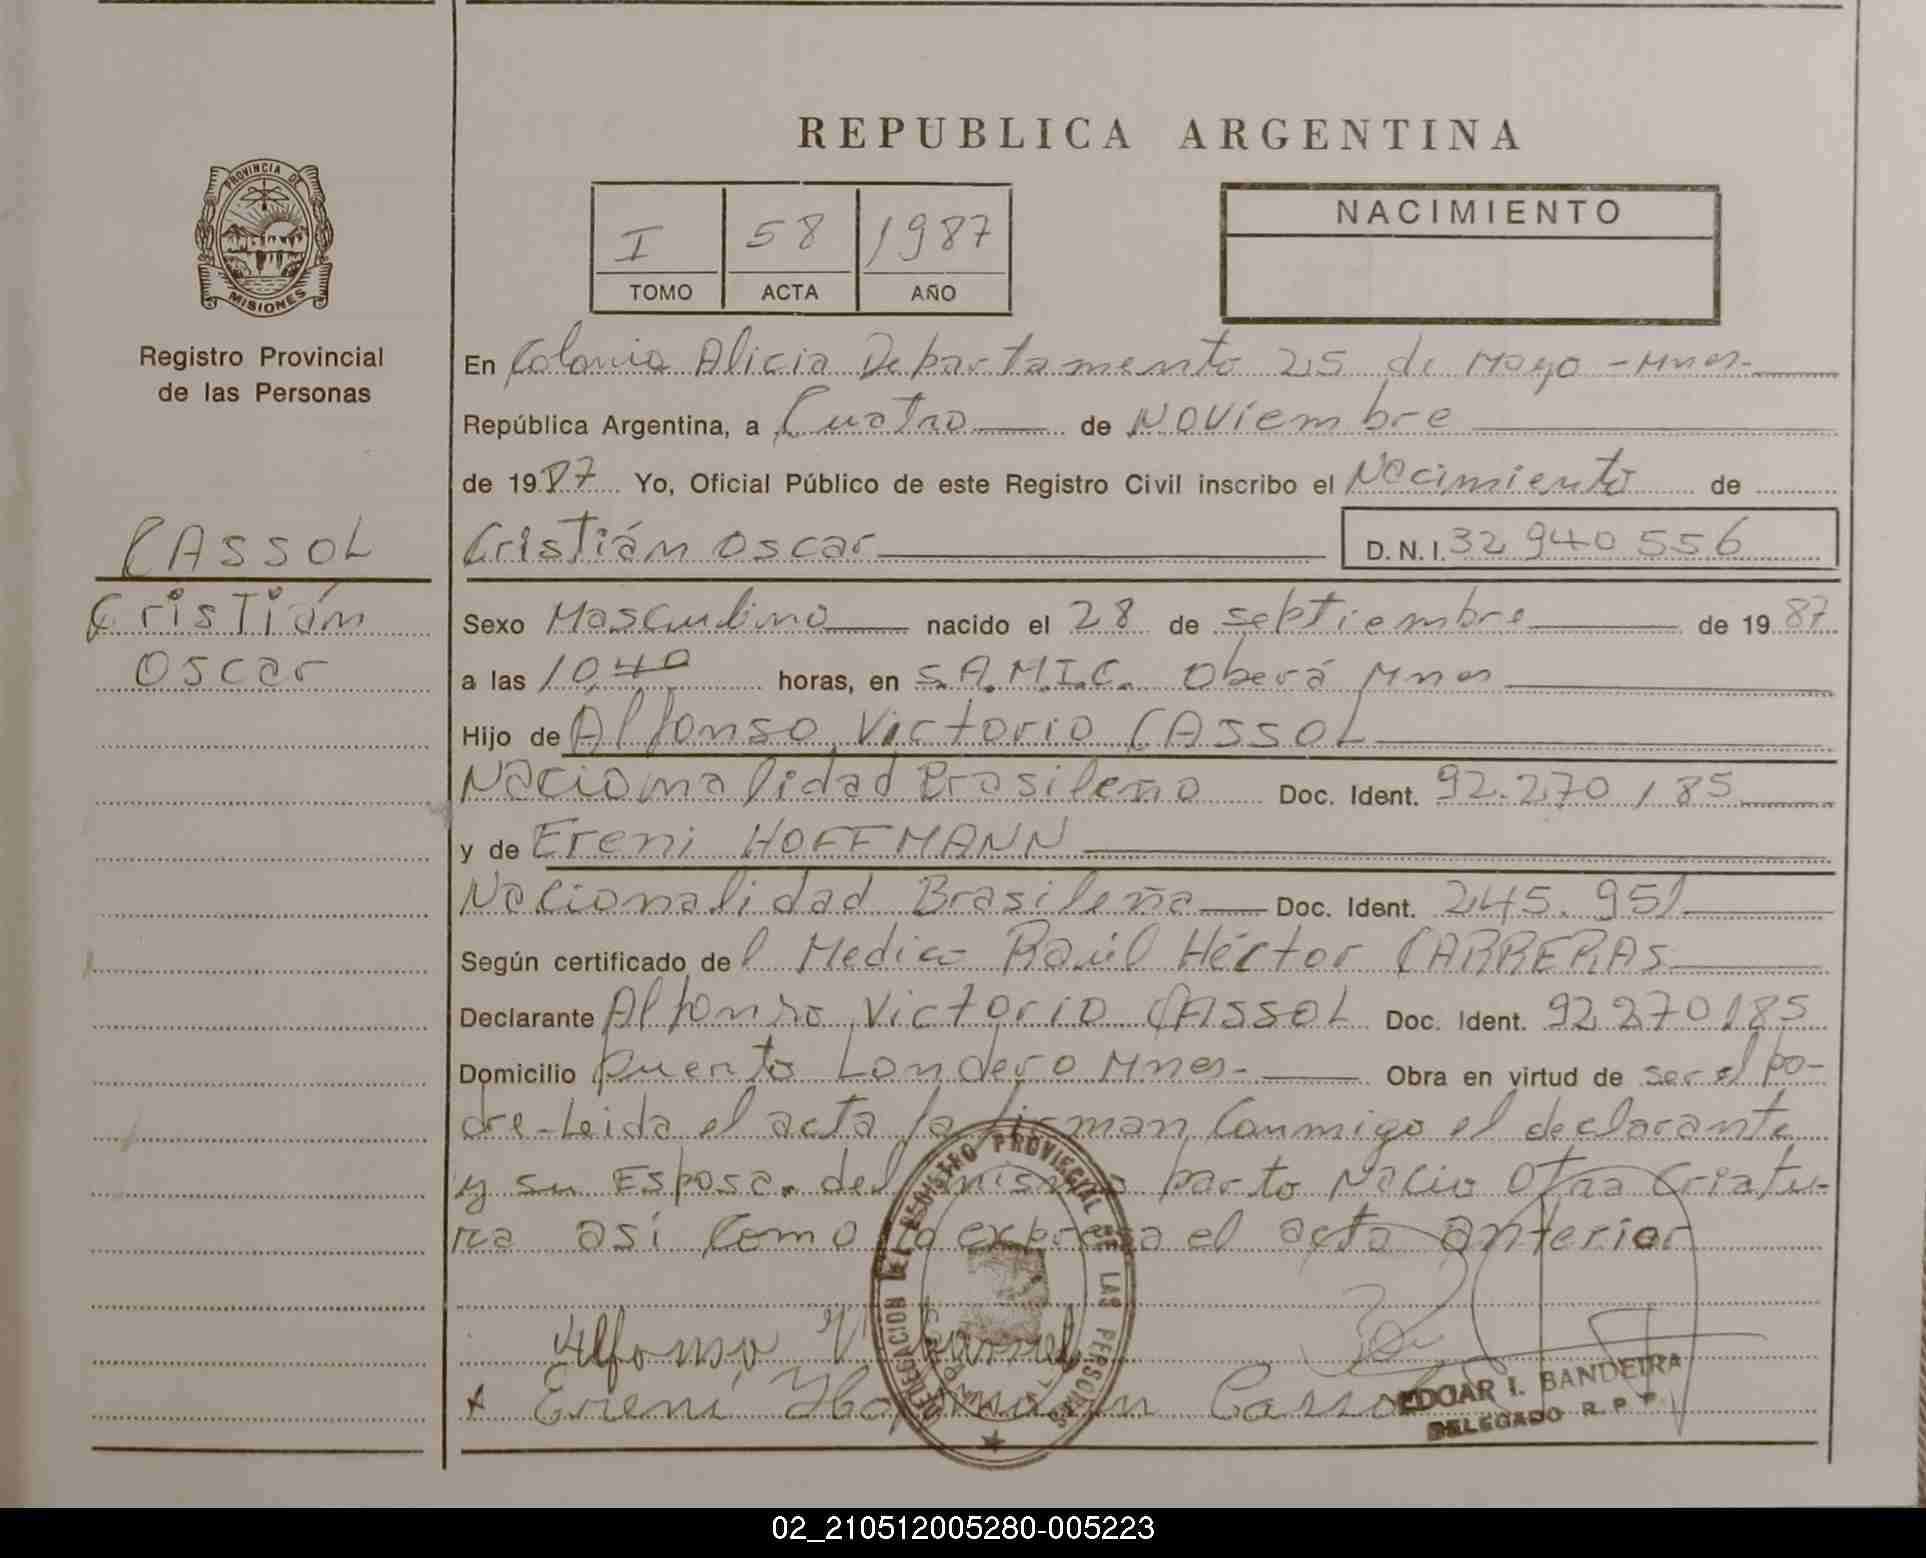 REPUBLICA ARGENTINA
PROVINCIA DE
MISIONES
Registro Provincial
de las Personas
I 58 1987
TOMO ACTA AÑO
NACIMIENTO
CASSOL
Cristián
Oscar
En Colonia Alicia Departamento 25 de Mayo - Mnes-
República Argentina, a Cuatro de Noviembre
de 1987 Yo, Oficial Público de este Registro Civil inscribo el Nacimiento de
Cristián Oscar D.N.I. 32 940 556
Sexo Masculino nacido el 28 de septiembre de 1987
a las 10,40 horas, en S.A.M.I.C. Oberá Mnes
Hijo de Alfonso Victorio CASSOL
Nacionalidad Brasileña Doc. Ident. 92.270,185
y de Ereni HOFFMANN
Nacionalidad Brasileña Doc. Ident. 245.951
Según certificado del Medico Raúl Héctor CARRERAS
Declarante Alfonso Victorio CASSOL Doc. Ident. 92270185
Domicilio Puerto Londero Mnes- Obra en virtud de ser el pa-
dre-Leida el acta la firman Conmigo el declarante
y su Esposa. del mismo parto Nacio Otra Criatu-
ra así Como lo expresa el acta anterior
Alfonso V
Ereni Hoffmann Cassol
DELEGACION DEL REGISTRO PROVINCIAL DE LAS PERSONAS
EDGAR I. BANDEIRA
DELEGADO R. P. P.
02_210512005280-005223